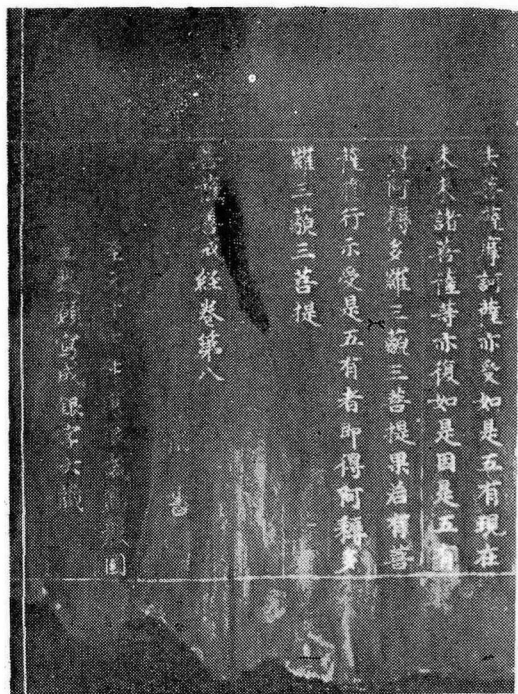 去菩薩摩訶薩亦受如是五有現在
未來諸菩薩等亦復如是因是五有
得阿耨多羅三藐三菩提果若有菩
薩修行示受是五有者即得阿耨多
羅三藐三菩提
菩薩善戒經卷第八
至元十七年庚辰歲高麗國
王發願寫成銀字大藏